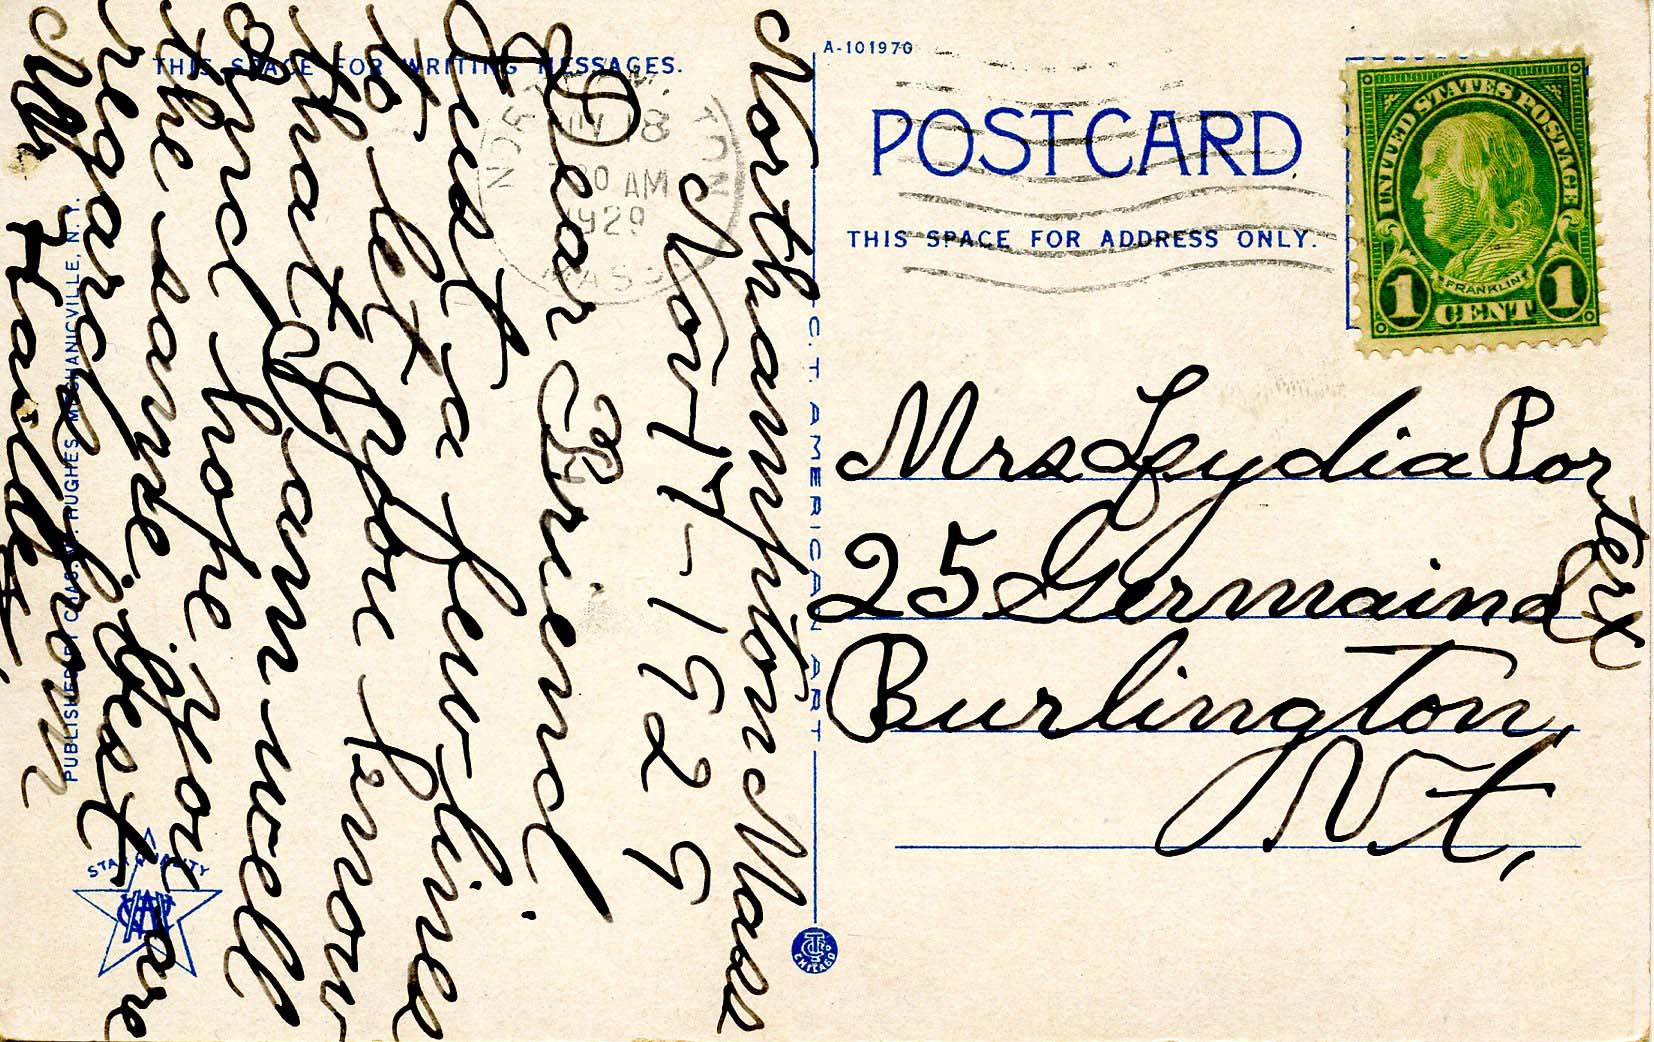 THIS SPACE FOR WRITING MESSAGES.
Northampton Mass
Nov-17-1929
Dear Friend
Just a few-line
to let you know
that I am well
and hope you are
the same. Best
regard from
Mr
PUBLISHED BY CHAS. W. HUGHES, MECHANICVILLE, N. Y.
STAR QUALITY
C. T. AMERICAN ART
CHICAGO
NORTHAMPTON
18
30 AM
1929
MASS.
A-101970
POST CARD
THIS SPACE FOR ADDRESS ONLY.
UNITED STATES POSTAGE
FRANKLIN
1 CENT 1
Mrs Leydia Porter
25 Germaind St
Burlington,
Vt,